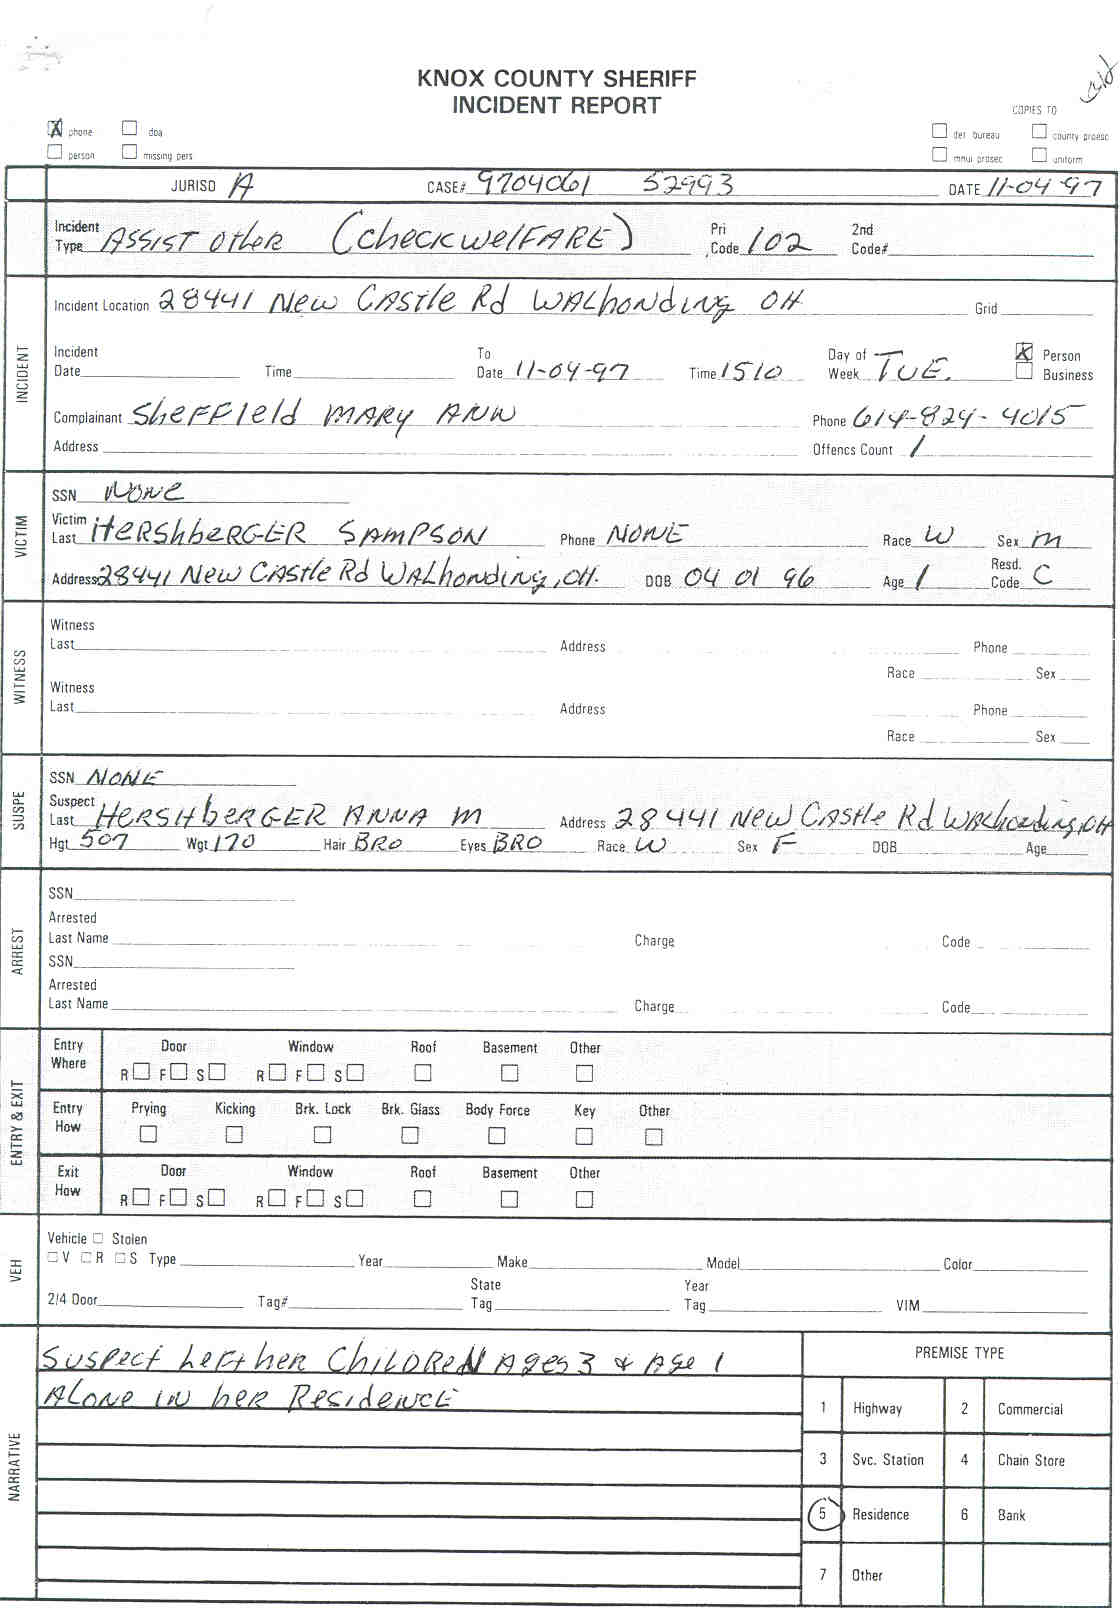 KNOX COUNTY SHERIFF
INCIDENT REPORT
COPIES TO
X phone doa det bureau county prosec
person missing pers mnui prosec uniform
JURISD A CASE# 9704061 52993 DATE 11-04-97
Incident Type Assist other (check welFARE) Pri Code 102 2nd Code#
INCIDENT
Incident Location 28441 New CAStle Rd WALhoNding OH Grid
Incident Date Time To Date 11-04-97 Time 1510 Day of Week TUE. X Person
Business
Complainant SheFField MARY ANN Phone 614-824-4015
Address Offencs Count 1
VICTIM
SSN NoNe
Victim Last HeRShbeRGER SAMPSON Phone NONE Race W Sex m
Address 28441 New CAStle Rd WALhonding, OH. DOB 04 01 96 Age 1 Resd. Code C
WITNESS
Witness
Last Address Phone
Race Sex
Witness
Last Address Phone
Race Sex
SUSPE
SSN NONE
Suspect Last HeRSHbeRGER ANNA M Address 28441 New CAStle Rd WALhonding, OH
Hgt 507 Wgt 170 Hair BRO Eyes BRO Race W Sex F DOB Age
ARREST
SSN
Arrested
Last Name Charge Code
SSN
Arrested
Last Name Charge Code
ENTRY & EXIT
Entry Where Door Window Roof Basement Other
R F S R F S
Entry How Prying Kicking Brk. Lock Brk. Glass Body Force Key Other
Exit How Door Window Roof Basement Other
R F S R F S
VEH
Vehicle Stolen
V R S Type Year Make Model Color
2/4 Door Tag# State Tag Year Tag VIM
NARRATIVE
Suspect LeFt her ChiLDReN Ages 3 & Age 1
ALoNe iN heR ResideNCE
PREMISE TYPE
1 Highway 2 Commercial
3 Svc. Station 4 Chain Store
5 Residence 6 Bank
7 Other